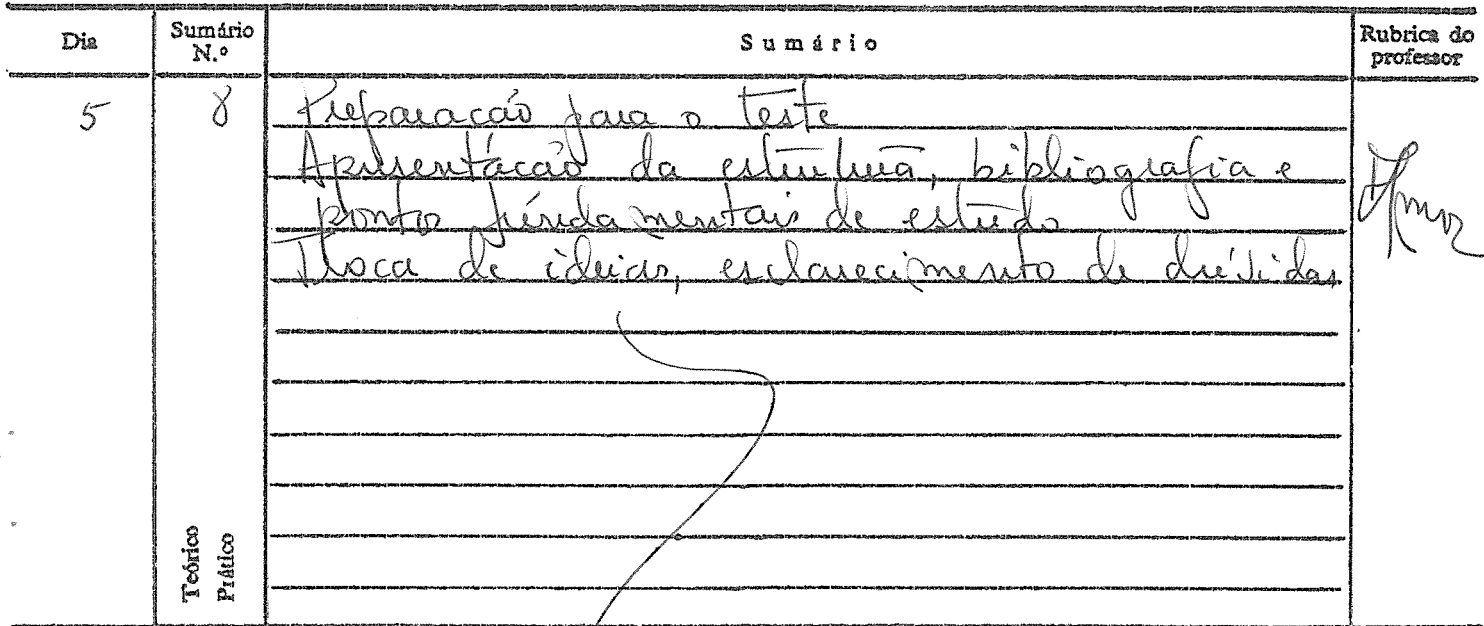 Dia Sumário N.º Sumário Rubrica do professor
5 8 Preparação para o teste
Apresentação da estrutura, bibliografia e
pontos fundamentais de estudo
Troca de ideias, esclarecimento de dúvidas
Teórico
Prático